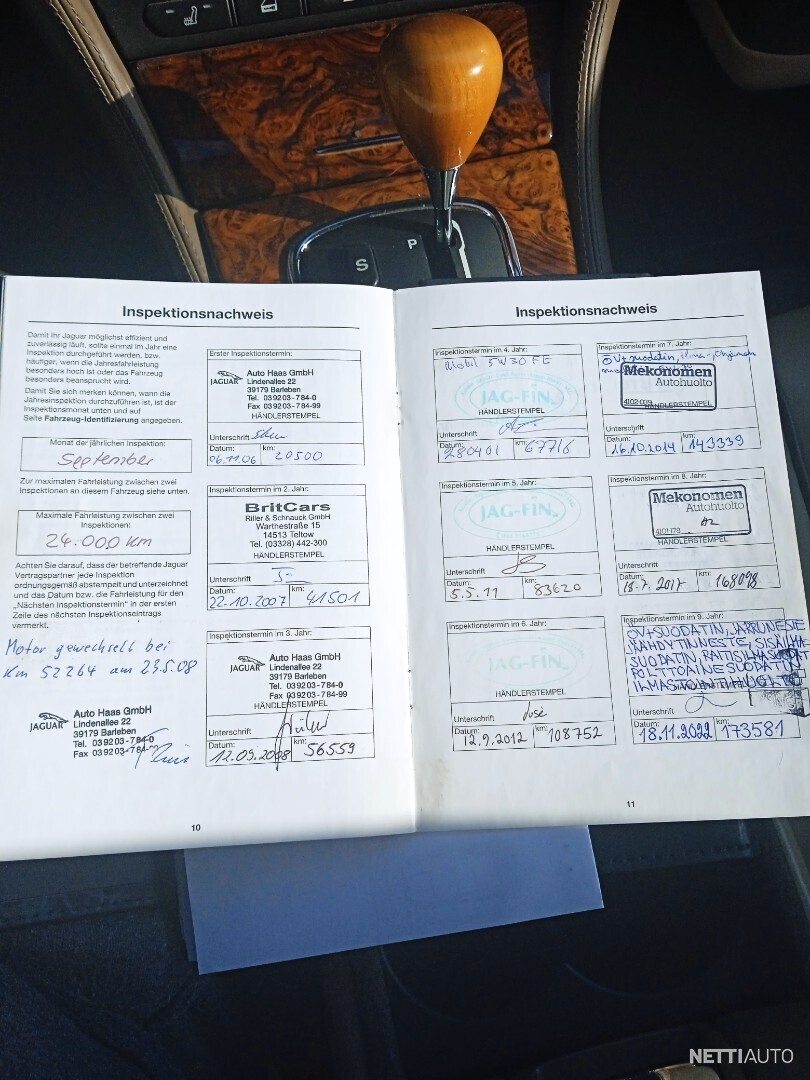 S
P
Inspektionsnachweis
Damit Ihr Jaguar möglichst effizient und
zuverlässig läuft, sollte einmal im Jahr eine
Inspektion durchgeführt werden, bzw.
häufiger, wenn die Jahresfahrleistung
besonders hoch ist oder das Fahrzeug
besonders beansprucht wird.
Damit Sie sich merken können, wann die
Jahresinspektion durchzuführen ist, ist der
Inspektionsmonat unten und auf
Seite Fahrzeug-Identifizierung angegeben.
Monat der jährlichen Inspektion:
September
Zur maximalen Fahrleistung zwischen zwei
Inspektionen an diesem Fahrzeug siehe unten.
Maximale Fahrleistung zwischen zwei
Inspektionen:
24.000 km
Achten Sie darauf, dass der betreffende Jaguar
Vertragspartner jede Inspektion
ordnungsgemäß abstempelt und unterzeichnet
und das Datum bzw. die Fahrleistung für den
„Nächsten Inspektionstermin“ in der ersten
Zeile des nächsten Inspektionseintrags
vermerkt.
Motor gewechselt bei
Km 52264 am 23.5.08
JAGUAR
Auto Haas GmbH
Lindenallee 22
39179 Barleben
Tel. 03 92 03 - 784-0
Fax 03 92 03 - 784-99
Erster Inspektionstermin:
JAGUAR
Auto Haas GmbH
Lindenallee 22
39179 Barleben
Tel. 03 92 03 - 784-0
Fax 03 92 03 - 784-99
HÄNDLERSTEMPEL
Unterschrift
Datum: km:
06.11.06 20500
Inspektionstermin im 2. Jahr:
BritCars
Riller & Schnauck GmbH
Warthestraße 15
14513 Teltow
Tel. (03328) 442-300
HÄNDLERSTEMPEL
Unterschrift
Datum: km:
22.10.2007 41501
Inspektionstermin im 3. Jahr:
JAGUAR
Auto Haas GmbH
Lindenallee 22
39179 Barleben
Tel. 03 92 03 - 784-0
Fax 03 92 03 - 784-99
HÄNDLERSTEMPEL
Unterschrift
Datum: km:
12.09.2008 56559
10
Inspektionsnachweis
Inspektionstermin im 4. Jahr:
Mobil 5W30 FE
JAG-FIN
HÄNDLERSTEMPEL
Unterschrift
Datum: km:
67716
Inspektionstermin im 5. Jahr:
JAG-FIN
HÄNDLERSTEMPEL
Unterschrift
Datum: km:
5.5.11 83620
Inspektionstermin im 6. Jahr:
JAG-FIN
HÄNDLERSTEMPEL
Unterschrift José
Datum: km:
12.9.2012 108752
Inspektionstermin im 7. Jahr:
ÖV+suodatin,
Mekonomen
Autohuolto
Unterschrift
Datum: km:
16.10.2014 143339
Inspektionstermin im 8. Jahr:
Mekonomen
Autohuolto
HÄNDLERSTEMPEL
Unterschrift
Datum: km:
18.7.2017 168098
Inspektionstermin im 9. Jahr:
ÖV+SUODATIN, JARRUNESTE
JÄÄHDYTINNESTE, SISÄILMA-
SUODATIN,
POLTTOAINESUODATIN
ILMASTOINTIHUOLTO
Unterschrift
Datum: km:
18.11.2022 173581
11
NETTIAUTO